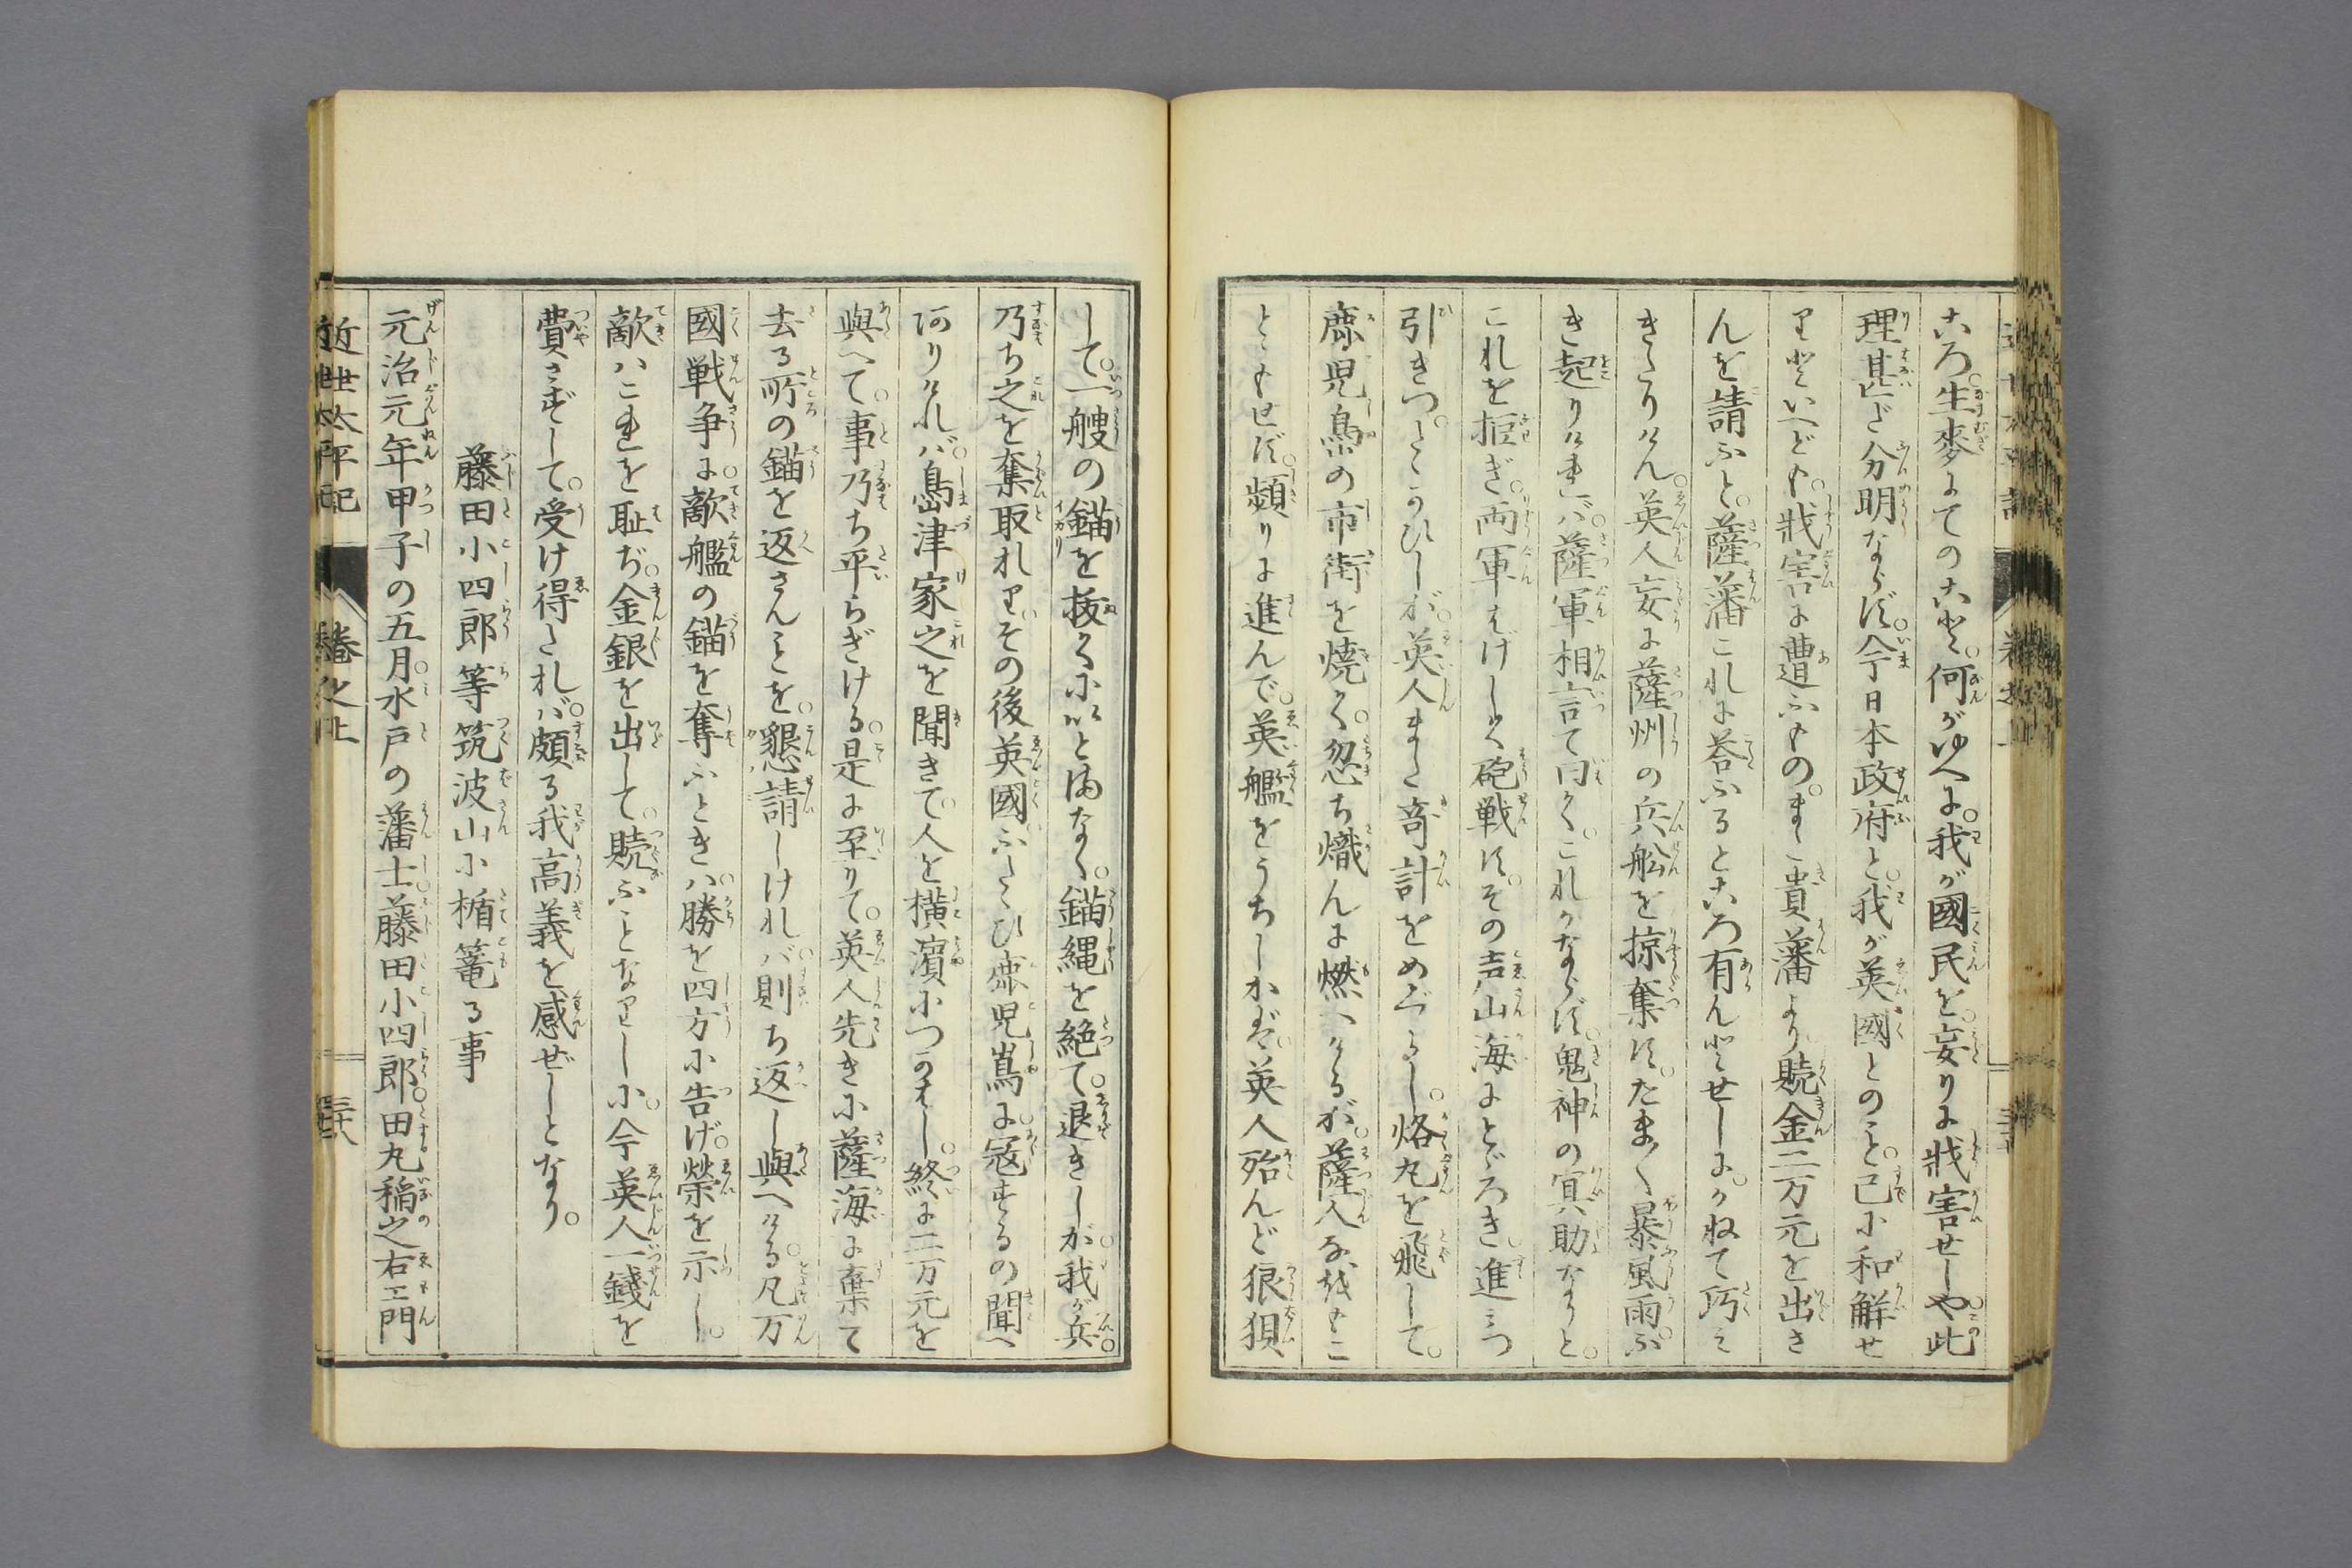 ころ。生麥にての事。何がゆへに。我が國民を。妄りに戕害せしや。此
理甚だ分明ならず。今日本政府と。我が英國との事。已に和解せ
りといへども。戕害に遭ふもの。また貴藩より贖金二万元を出さ
んを請ふと。薩藩これに答ふるところ有んとせしに。かねて巧み
きたりけん。英人妄に薩州の兵舩を掠奪す。たま〱暴風雨。ふ
き起りければ。薩軍相言て曰く。これかならず。鬼神の冥助なりと。
これを拒ぎ。両軍はげしく砲戦す。その声山海にとどろき。進みつ
引きつ。たゝかひしが。英人また竒計をめぐらし。烙丸を飛して。
鹿児島の市街を焼く。忽ち熾んに燃へけるが。薩人なほもこ
とゝもせず。頻りに進んで。英艦をうちしかば。英人殆んど狼狽
して。一艘の錨を抜くにいとまなく。錨縄を絶て。退きしが。我が兵。
乃ち之を奪取れり。その後英國ふたゝび鹿児嶌に。寇するの聞へ
ありければ。島津家之を聞きて。人を横濱につかはし。終に二万元を
與へて。事乃ち平らぎける。是に至りて。英人先きに薩海に棄て
去る所の錨を返さんことを。懇請しければ。則ち返し與へける。凡万
國戦争に。敵艦の錨を奪ふときは。勝を四方に告げ。榮を示し。
敵はこれを耻ぢ。金銀を出して。贖ふことなりしに。今英人一錢を
費さずして。受け得たれば。頗る我高義を感ぜしとなり。
藤田小四郎等筑波山に楯篭る事
元治元年甲子の五月。水戸の藩士。藤田小四郎。田丸稲之右エ門
近世太平記
巻之上
三十八